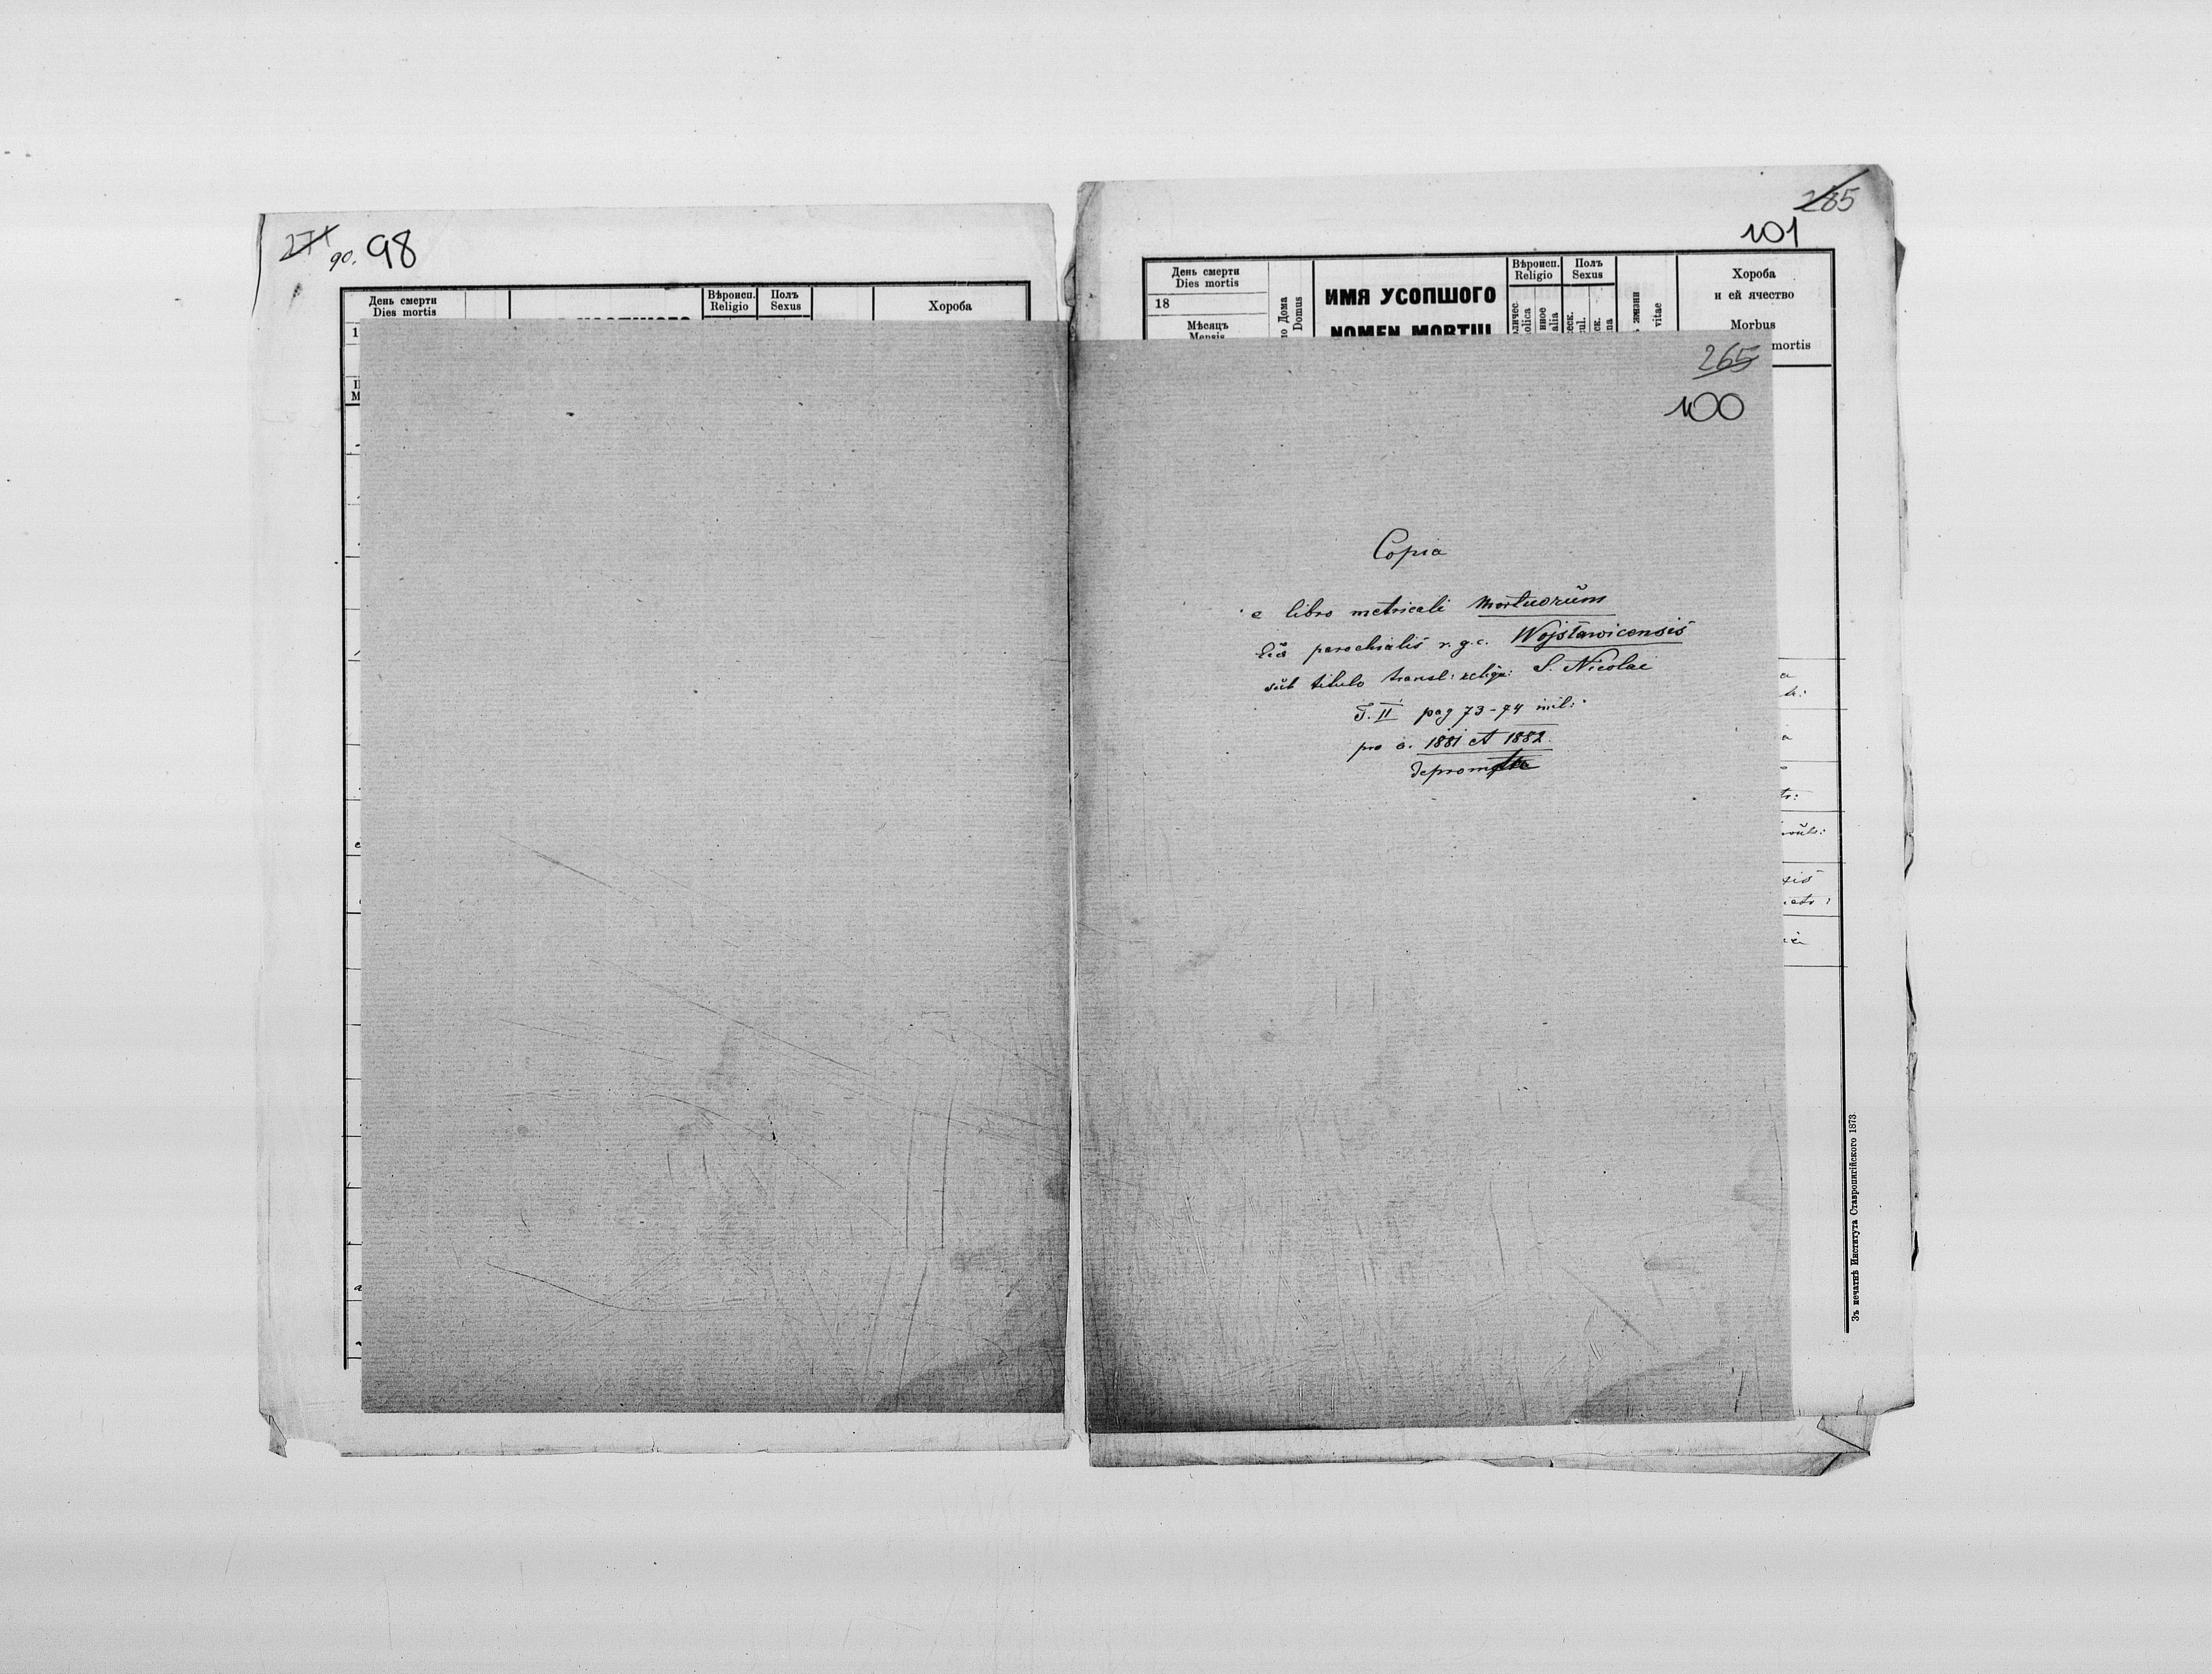 90. 98
День смерти
Dies mortis
Вѣроисп.
Religio
Полъ
Sexus
Хороба
265
101
День смерти
Dies mortis
18
Мѣсяцъ
Mensis
Дома
Domus
ИМЯ УСОПШОГО
NOMEN MORTUI
Вѣроисп.
Religio
Полъ
Sexus
жизни
vitae
Хороба
и ей ячество
Morbus
mortis
265
100
Copia
e libro metricali Mortuorum
parochialis r. g. c. Wojsławicensis
sub titulo transl: S. Nicolai
T. II pag 73-74
pro a. 1881 et 1882.
Зъ печатнѣ Института Ставропигійского 1873